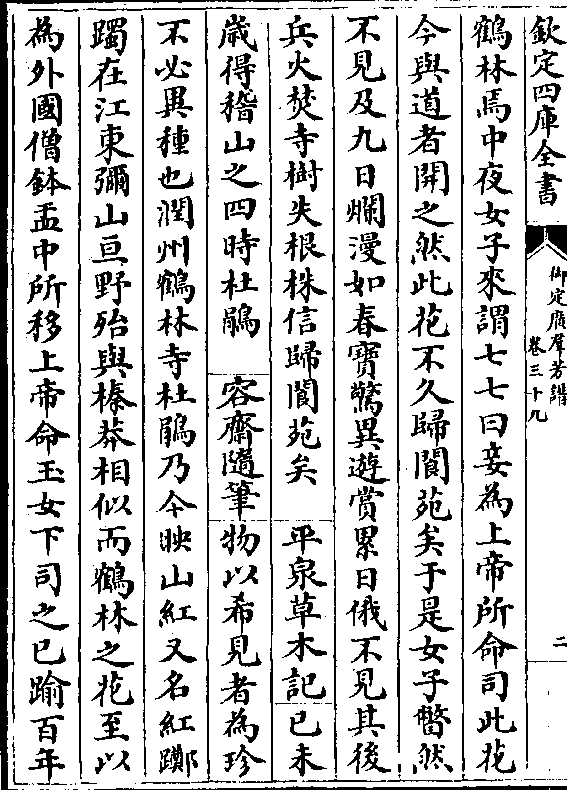 欽定四庫全書
御定廣羣芳譜
卷三十九
二
鶴林焉中夜女子來謂七七曰妾為上帝所命司此花
今與道者開之然此花不久歸閬苑矣于是女子瞥然
不見及九日爛漫如春寶驚異遊賞累日俄不見其後
兵火焚寺樹失根株信歸閬苑矣 平泉草木記 已未
歲得稽山之四時杜鵑 容齋隨筆 物以希見者為珍
不必異種也潤州鶴林寺杜鵑乃今映山紅又名紅躑
躅在江東彌山亘野殆與榛莽相似而鶴林之花至以
為外國僧鉢盂中所移上帝命玉女下司之已踰百年